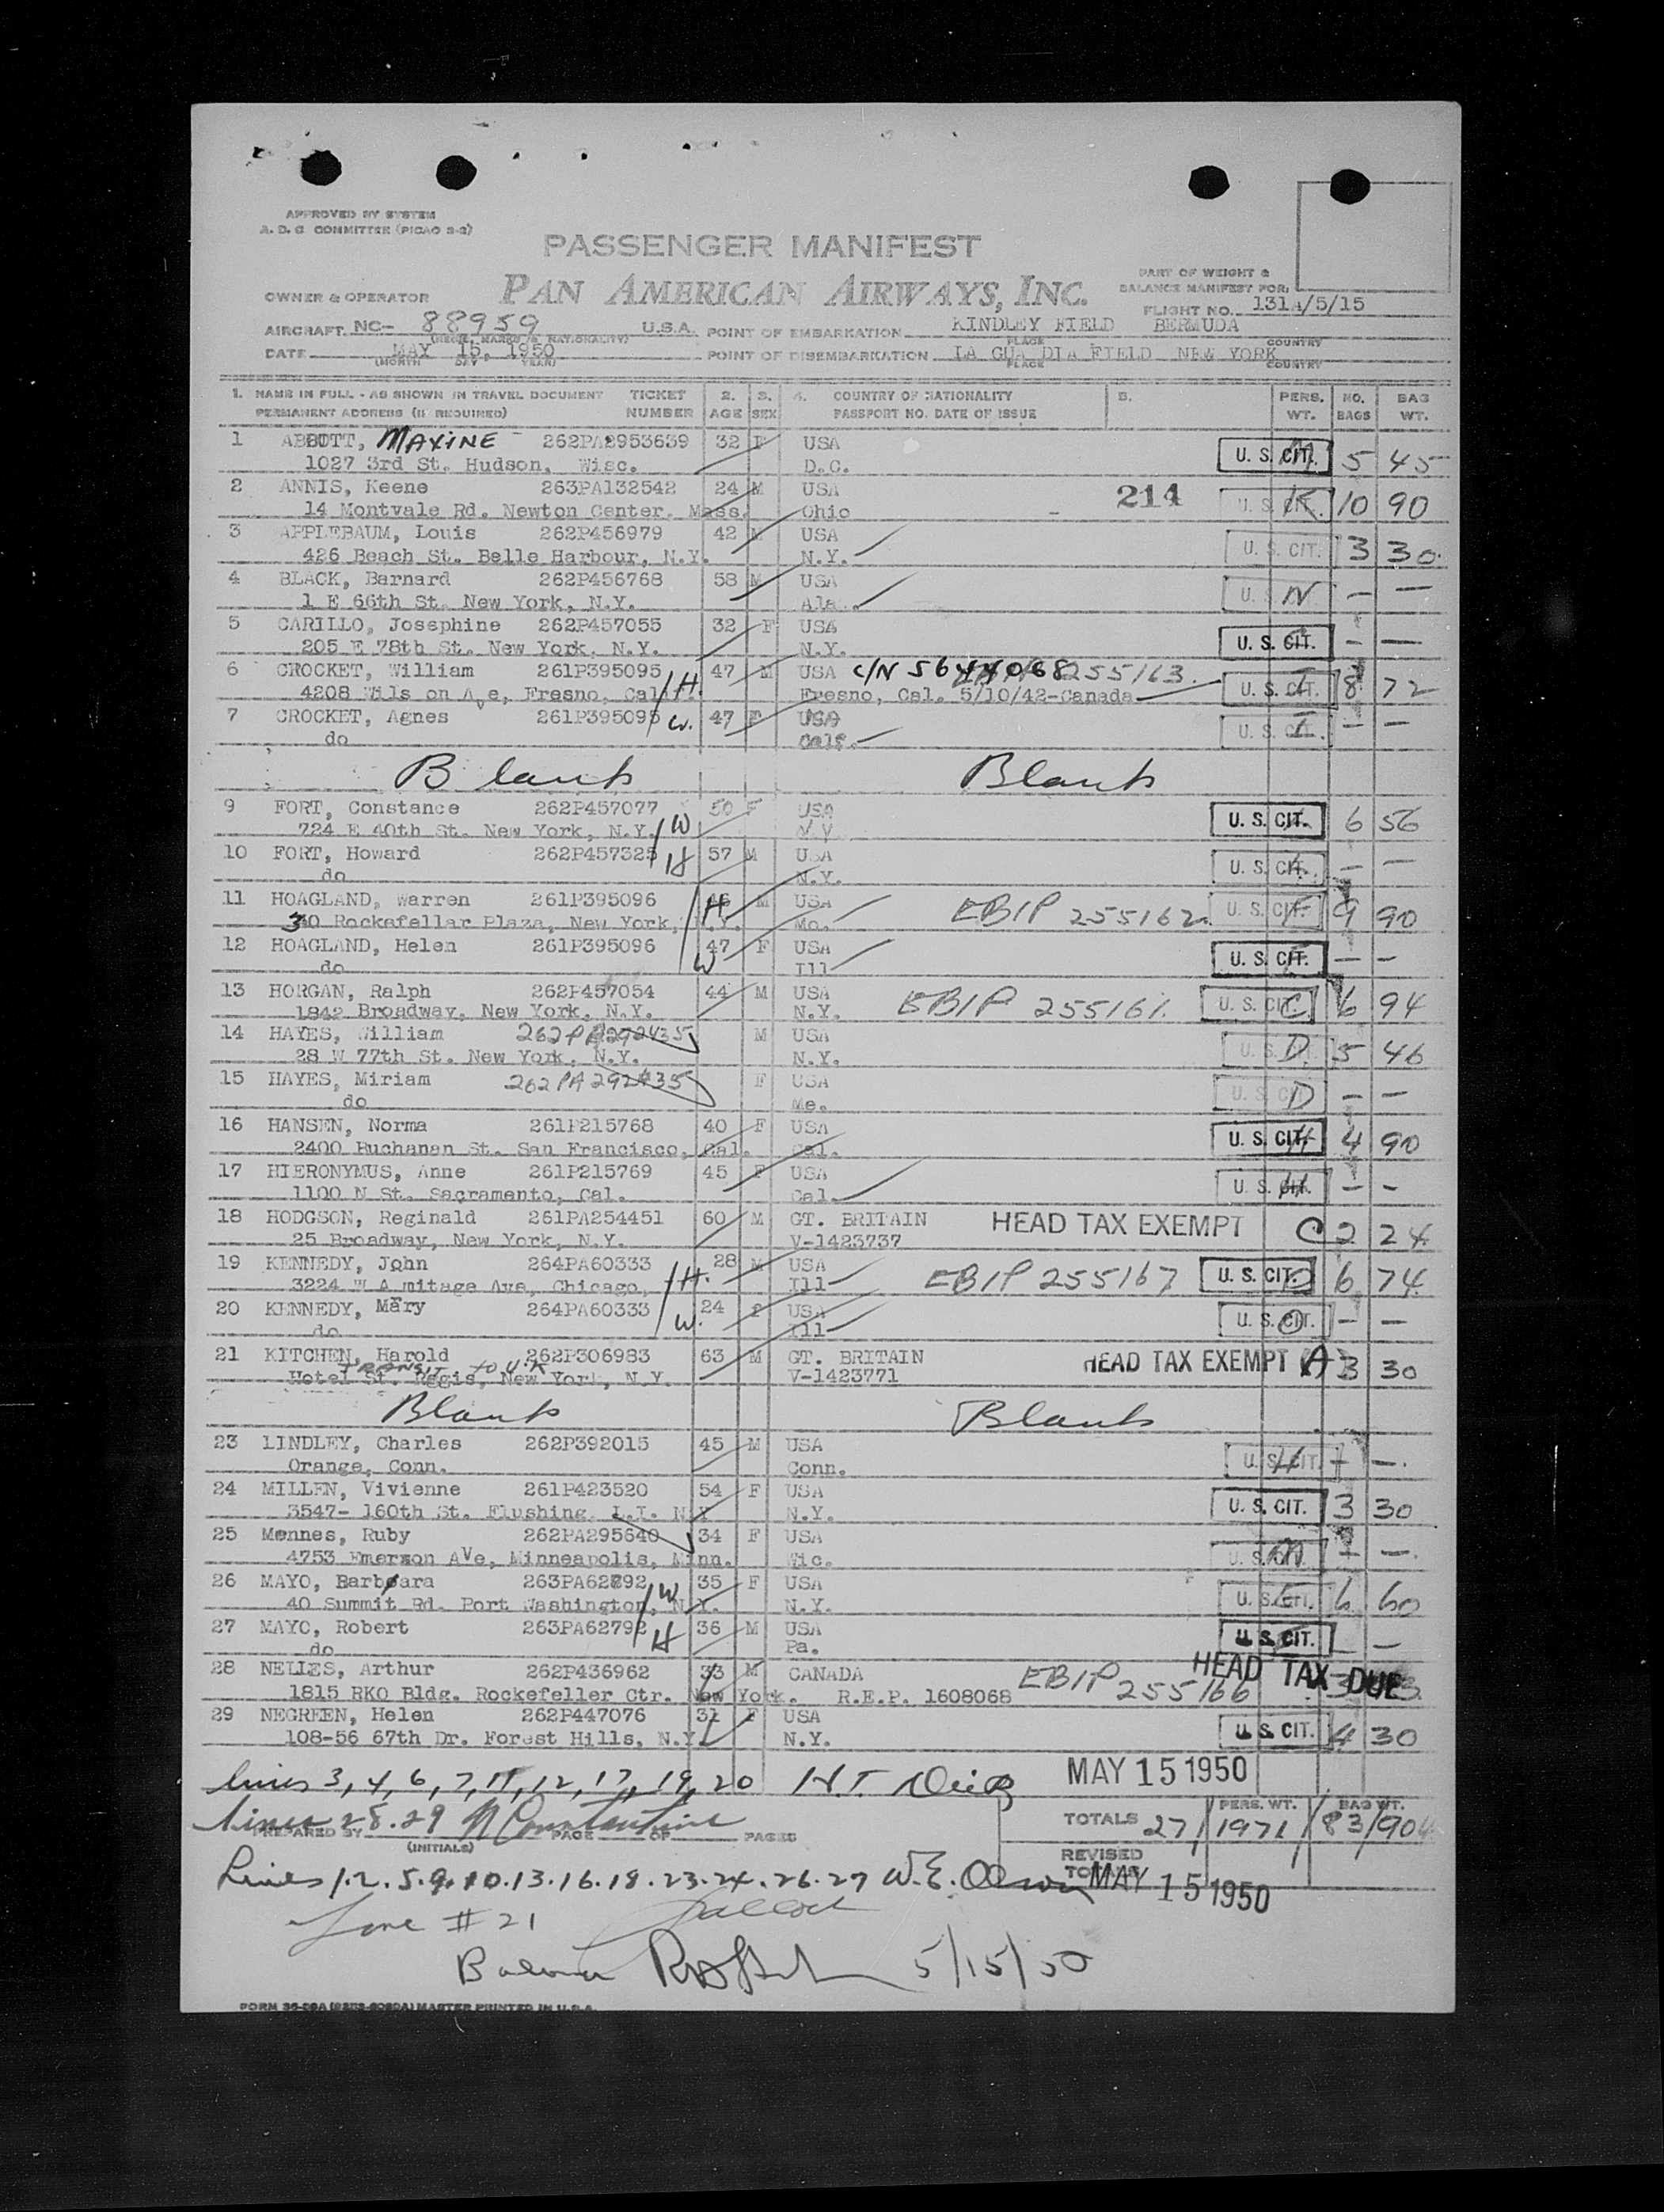 APPROVED BY SYSTEM
A. D. C COMMITTEE (PICAO 2-2)
PASSENGER MANIFEST
PART OF WEIGHT &
BALANCE MANIFEST FOR:
OWNER & OPERATOR PAN AMERICAN AIRWAYS, INC.
FLIGHT NO. 131A/5/15
AIRCRAFT NC- 88959 U.S.A. POINT OF EMBARKATION KINDLEY FIELD BERMUDA
(REGIS. MARKS & NATIONALITY) PLACE COUNTRY
DATE MAY 15, 1950 POINT OF DISEMBARKATION LA GUA DIA FIELD NEW YORK
(MONTH DAY YEAR) PLACE COUNTRY
1. NAME IN FULL - AS SHOWN IN TRAVEL DOCUMENT TICKET 2. 3. 4. COUNTRY OF NATIONALITY 5. PERS. NO. BAG
PERMANENT ADDRESS (IF REQUIRED) NUMBER AGE SEX PASSPORT NO. DATE OF ISSUE WT. BAGS WT.
1 ABBOTT, MAXINE 262PA2953639 32 F USA U. S. CIT. 5 45
1027 3rd St. Hudson, Wisc. D.C.
2 ANNIS, Keene 263PA132542 24 M USA 214 U. S. CIT. 10 90
14 Montvale Rd. Newton Center, Mass. Ohio
3 APPLEBAUM, Louis 262P456979 42 M USA U. S. CIT. 3 30
426 Beach St. Belle Harbour, N.Y. N.Y.
4 BLACK, Barnard 262P456768 58 M USA U. N — —
1 E 66th St. New York, N.Y. Ala.
5 CARILLO, Josephine 262P457055 32 F USA U. S. CIT. — —
205 E 78th St. New York, N.Y. N.Y.
6 CROCKET, William 261P395095 H. 47 M USA C/N 5644068 255163 U. S. CIT. 8 72
4208 Wils on Ave, Fresno, Cal. Fresno, Cal. 5/10/42-Canada
7 CROCKET, Agnes 261P395095 W. 47 F USA U. S. CIT. — —
do Calf.
Blank Blank
9 FORT, Constance 262P457077 W 50 F USA U. S. CIT. 6 56
724 E 40th St. New York, N.Y. N.Y.
10 FORT, Howard 262P457325 H 57 M USA U. S. CIT. — —
do N.Y.
11 HOAGLAND, Warren 261P395096 H M USA EBIP 255162 U. S. CIT. 9 90
30 Rockafellar Plaza, New York, N.Y. Mo.
12 HOAGLAND, Helen 261P395096 W 47 F USA U. S. CIT. — —
do Ill
13 HORGAN, Ralph 262P457054 44 M USA EBIP 255161 U. S. CIT. 6 94
1842 Broadway, New York, N.Y. N.Y.
14 HAYES, William 262PA292435 M USA U. S. D 5 46
28 W 77th St. New York, N.Y. N.Y.
15 HAYES, Miriam 262PA292435 F USA U. S. D — —
do Me.
16 HANSEN, Norma 261P215768 40 F USA U. S. CIT. 4 90
2400 Buchanan St. San Francisco, Cal. Cal.
17 HIERONYMUS, Anne 261P215769 45 F USA U. S. CIT. — —
1100 N St. Sacramento, Cal. Cal.
18 HODGSON, Reginald 261PA254451 60 M GT. BRITAIN HEAD TAX EXEMPT C 2 24
25 Broadway, New York, N.Y. V-1423737
19 KENNEDY, John 264PA60333 H. 28 M USA EBIP 255167 U. S. CIT. 6 74
3224 W A mitage Ave, Chicago, Ill
20 KENNEDY, Mary 264PA60333 W. 24 F USA U. S. CIT. — —
do Ill
21 KITCHEN, Harold 262P306983 63 M GT. BRITAIN HEAD TAX EXEMPT A 3 30
TRANSIT to U.K
Hotel St. Regis, New York, N.Y. V-1423771
Blank Blank
23 LINDLEY, Charles 262P392015 45 M USA U. S. CIT. — —
Orange, Conn. Conn.
24 MILLEN, Vivienne 261P423520 54 F USA U. S. CIT. 3 30
3547- 160th St. Flushing, L.I. N.Y N.Y.
25 Mennes, Ruby 262PA295640 34 F USA U. S. CIT. — —
4753 Emerson AVe, Minneapolis, Minn. Wic.
26 MAYO, Barbara 263PA62792 W 35 F USA U. S. CIT. 6 60
40 Summit Rd. Port Washington, N.Y. N.Y.
27 MAYO, Robert 263PA62792 H 36 M USA U. S. CIT. — —
do Pa.
28 NELLES, Arthur 262P436962 33 M CANADA EBIP 255166 HEAD TAX DUE
1815 RKO Bldg. Rockefeller Ctr. New York. R.E.P. 1608068
29 NEGREEN, Helen 262P447076 31 F USA U. S. CIT. 4 30
108-56 67th Dr. Forest Hills, N.Y. N.Y.
lines 3, 4, 6, 7, 11, 12, 17, 19, 20 MAY 15 1950
lines 28.29 N Constantine
PREPARED BY PAGE OF PAGES
(INITIALS)
TOTALS 27 PERS. WT. 1971 BAG WT. 83/904
REVISED
TOTALS MAY 15 1950
Lines 1.2.5.9.10.13.16.18.23.24.26.27 W.E. Olson
Line # 21
5/15/50
FORM 36-09A MASTER PRINTED IN U.S.A.